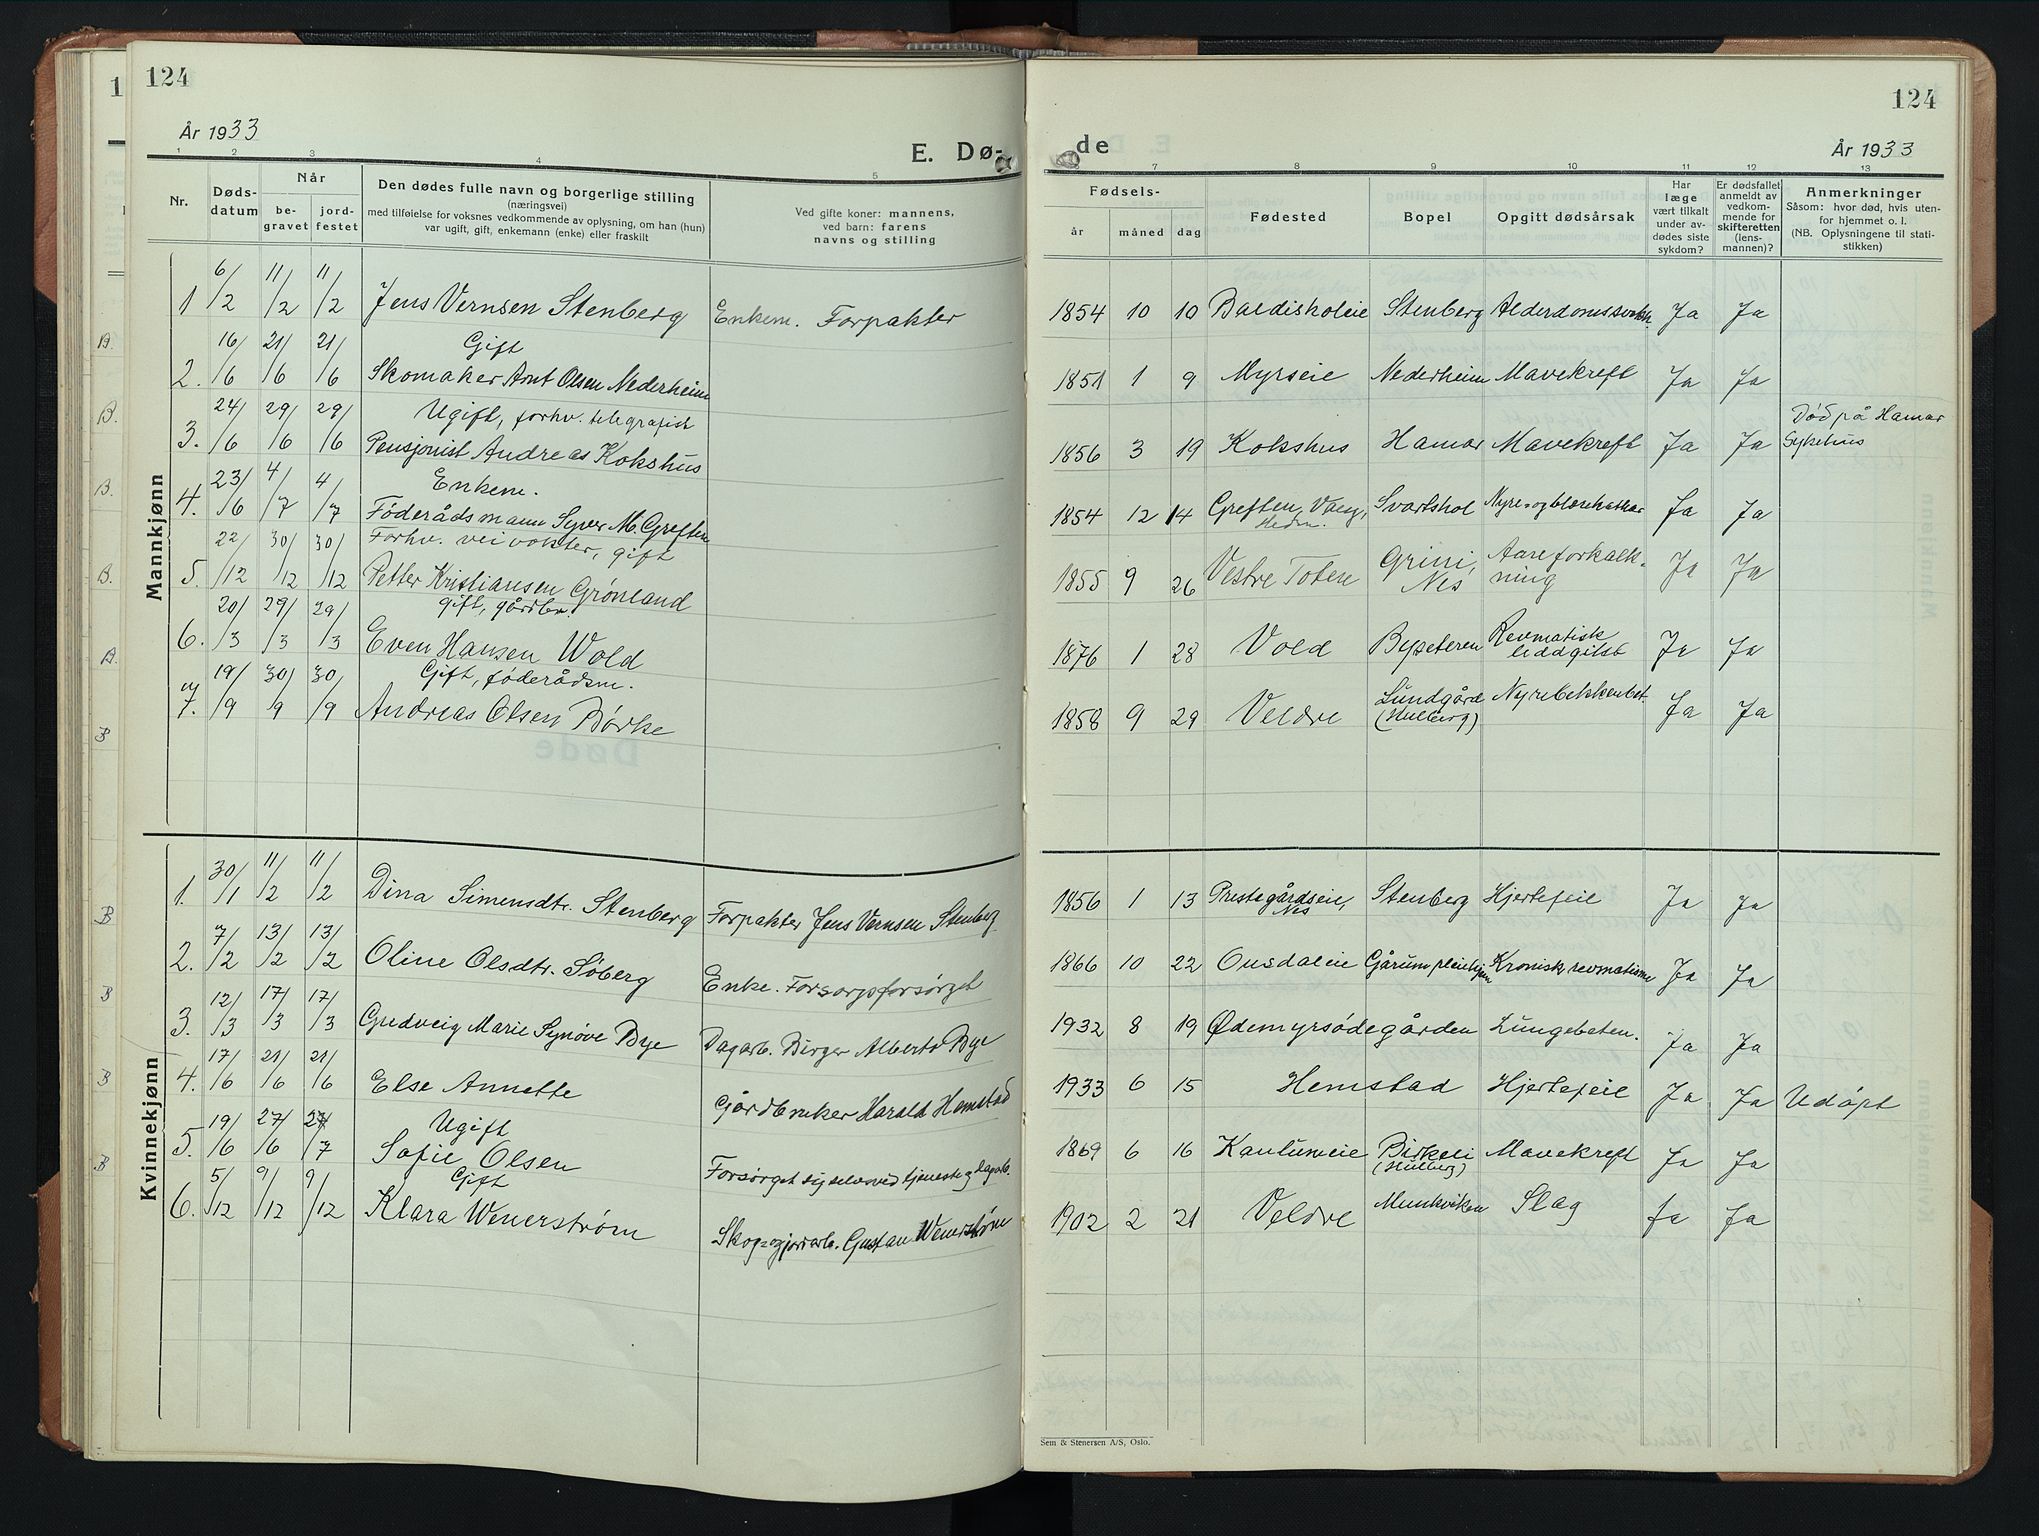 124
År 1933
E. Dø-
1 2 3 4 5
Nr.
Døds-
datum
Når
be-
gravet
jord-
festet
Den dødes fulle navn og borgerlige stilling
(næringsvei)
med tilføielse for voksnes vedkommende av oplysning, om han (hun)
var ugift, gift, enkemann (enke) eller fraskilt
Ved gifte koner: mannens,
ved barn: farens
navns og stilling
Mannkjønn
1 6/2 11/2 11/2 Jens Vernsen Stenberg Enkem. Forpakter
Gift
2. 16/6 21/6 21/6 Skomaker Arnt Olsen Nederheim
Ugift, forhv. telegrafist
3. 24/6 29/6 29/6 Pensjonist Andreas Kokshus
Enkem.
4. 23/6 4/7 4/7 Föderådsmann Syver M. Greften
Forhv. veivokter, gift
5. 22/12 30/12 30/12 Petter Kristiansen Grönland
gift, gårdbr.
6. 20/3 29/3 29/3 Even Hansen Wold
Gift, føderådsm.
7. 19/9 30/9 30/9 Andreas Olsen Börke
Kvinnekjønn
1. 30/1 11/2 11/2 Dina Simensdtr. Stenberg Forpakter Jens Vernsen Stenberg
2. 7/2 13/2 13/2 Oline Olsdtr. Söberg Enke. Forsorgsforsørget
3. 12/3 17/3 17/3 Gudveig Marie Synöve Bye Dagarb. Birger Alberts Bye
4. 17/6 21/6 21/6 Else Annette Gårdbruker Harald Hemstad
Ugift
5. 19/6 27/6 27/7 Sofie Olsen Forsørget sig selv ved tjeneste og dagarb.
Gift
6. 5/12 9/12 9/12 Klara Wenerström Skog- og jordarb. Gustav Wenerström
124
de
År 1933
7 8 9 10 11 12 13
Fødsels-
år måned dag
Fødested
Bopel
Opgitt dødsårsak
Har
læge
vært tilkalt
under av-
dødes siste
sykdom?
Er dødsfallet
anmeldt av
vedkom-
mende for
skifteretten
(lens-
mannen)?
Anmerkninger
Såsom: hvor død, hvis uten-
for hjemmet o. l.
(NB. Oplysningene til stati-
stikken)
1854 10 10 Baldiskoleie Stenberg Alderdomssvekk. Ja Ja
1851 1 9 Myrseie Nederheim Mavekreft Ja Ja
1856 3 19 Kokshus Hamar Mavekreft Ja Ja Död på Hamar
Sykehus
1854 12 14 Greften, Vang, Hedm. Svartshol Nyre- og blærekatar Ja Ja
1855 9 26 Vestre Toten Grini, Nes Aareforkalk-
ning Ja Ja
1876 1 28 Vold Bypeteren Revmatisk
leddgikt Ja Ja
1858 9 29 Veldre Lundgård
(Hulberg) Nyrebekkenbet. Ja Ja
1856 1 13 Prestegårdseie, Nes Stenberg Hjertefeil Ja Ja
1866 10 22 Ousdaleie Gårum pleiehjem Kronisk revmatisme Ja Ja
1932 8 19 Ødemyrsødegården Lungebeten. Ja Ja
1933 6 15 Hemstad Hjertefeil Ja Ja Udöpt
1869 6 16 Kaulumeie Birkeli
(Hulberg) Mavekreft Ja Ja
1902 2 21 Veldre Munkviken Slag Ja Ja
Sem & Stenersen A/S, Oslo.